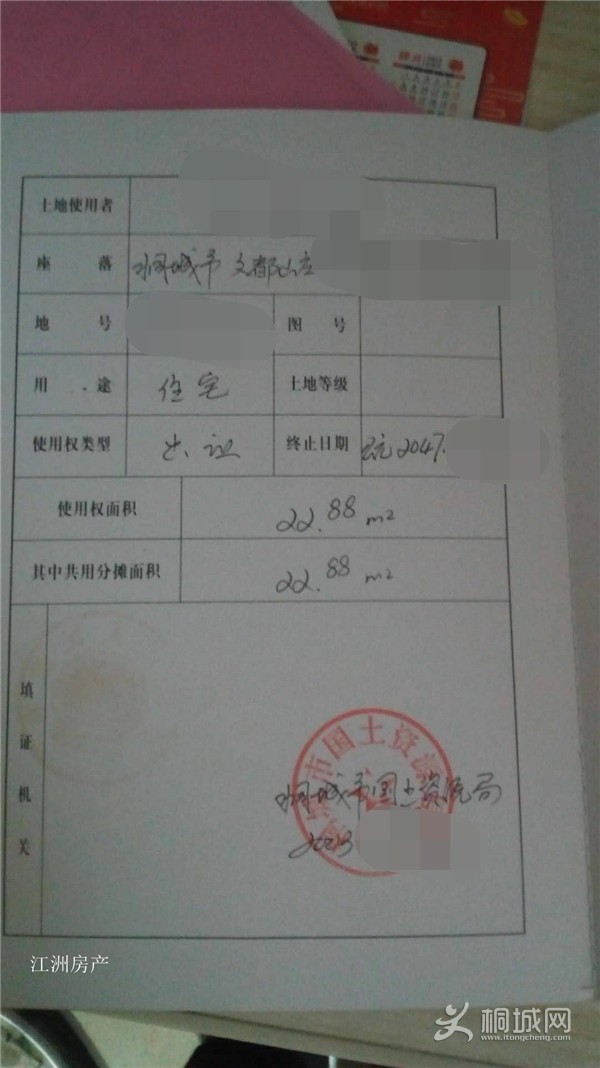 土地使用者
座落 桐城市 文都山庄
地号 图号
用途 住宅 土地等级
使用权类型 出让 终止日期 2047.
使用权面积 22.88 m²
其中共用分摊面积 22.88 m²
填证机关
市国土资源
桐城市国土资源局
江洲房产
桐城网
www.itongcheng.com